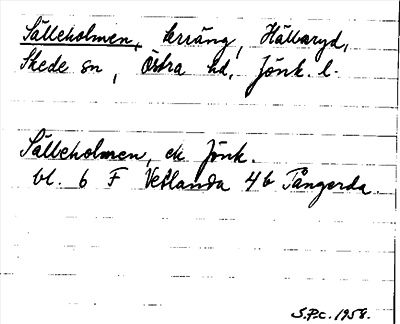 Sälleholmen, terräng, Hällaryd,
Skede sn, Östra hd, Jönk. l.
Sälleholmen, ek Jönk.
bl. 6 F Vetlanda 4b Tångerda.
S.P.c. 1958.